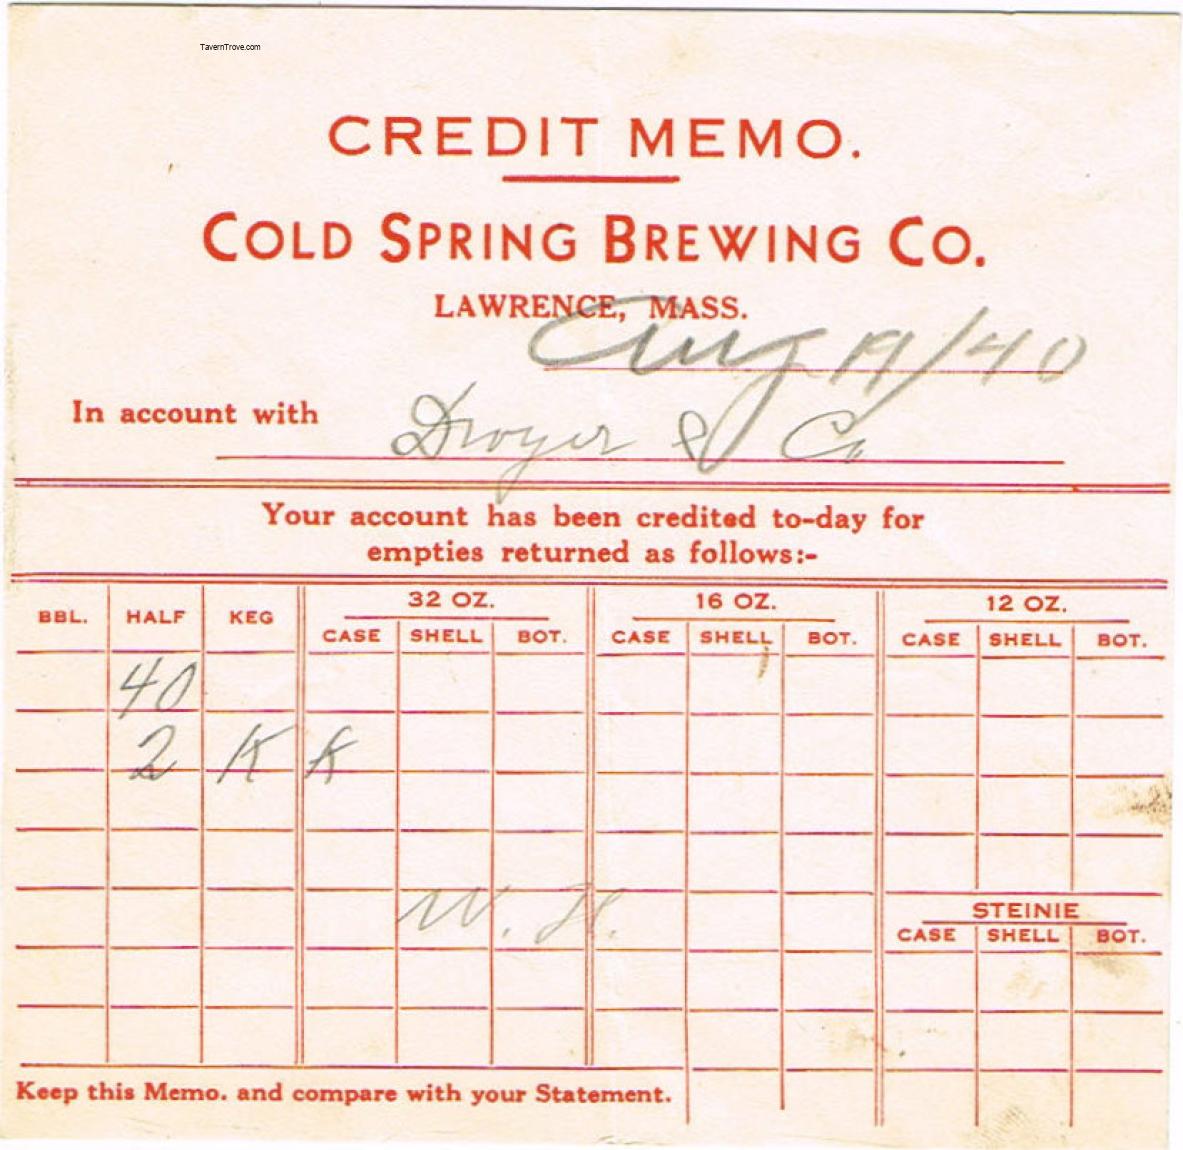 TavernTrove.com
CREDIT MEMO.
COLD SPRING BREWING CO.
LAWRENCE, MASS.
Aug 19/40
In account with Dwyer & Co
Your account has been credited to-day for
empties returned as follows:-
BBL. HALF KEG 32 OZ. 16 OZ. 12 OZ.
CASE SHELL BOT. CASE SHELL BOT. CASE SHELL BOT.
40
2 K K
W. H.
STEINIE
CASE SHELL BOT.
Keep this Memo. and compare with your Statement.